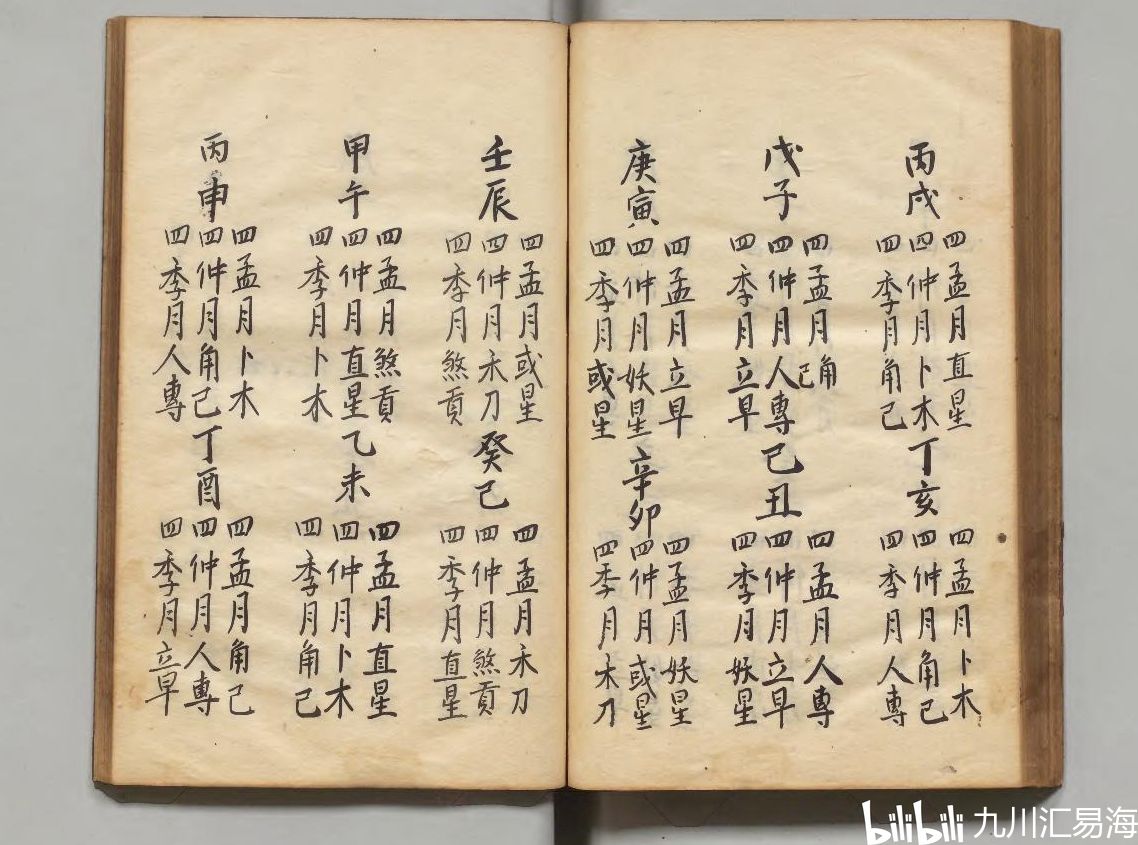 丙戌
四孟月直星
四仲月卜木
四季月角己
丁亥
四孟月卜木
四仲月角己
四季月人專
戊子
四孟月角己
四仲月人專
四季月立早
己丑
四孟月人專
四仲月立早
四季月妖星
庚寅
四孟月立早
四仲月妖星
四季月或星
辛卯
四孟月妖星
四仲月或星
四季月木刀
壬辰
四孟月或星
四仲月禾刀
四季月煞貢
癸己
四孟月禾刀
四仲月煞貢
四季月直星
甲午
四孟月煞貢
四仲月直星
四季月卜木
乙未
四孟月直星
四仲月卜木
四季月角己
丙申
四孟月卜木
四仲月角己
四季月人專
丁酉
四孟月角己
四仲月人專
四季月立早
bilibili 九川汇易海